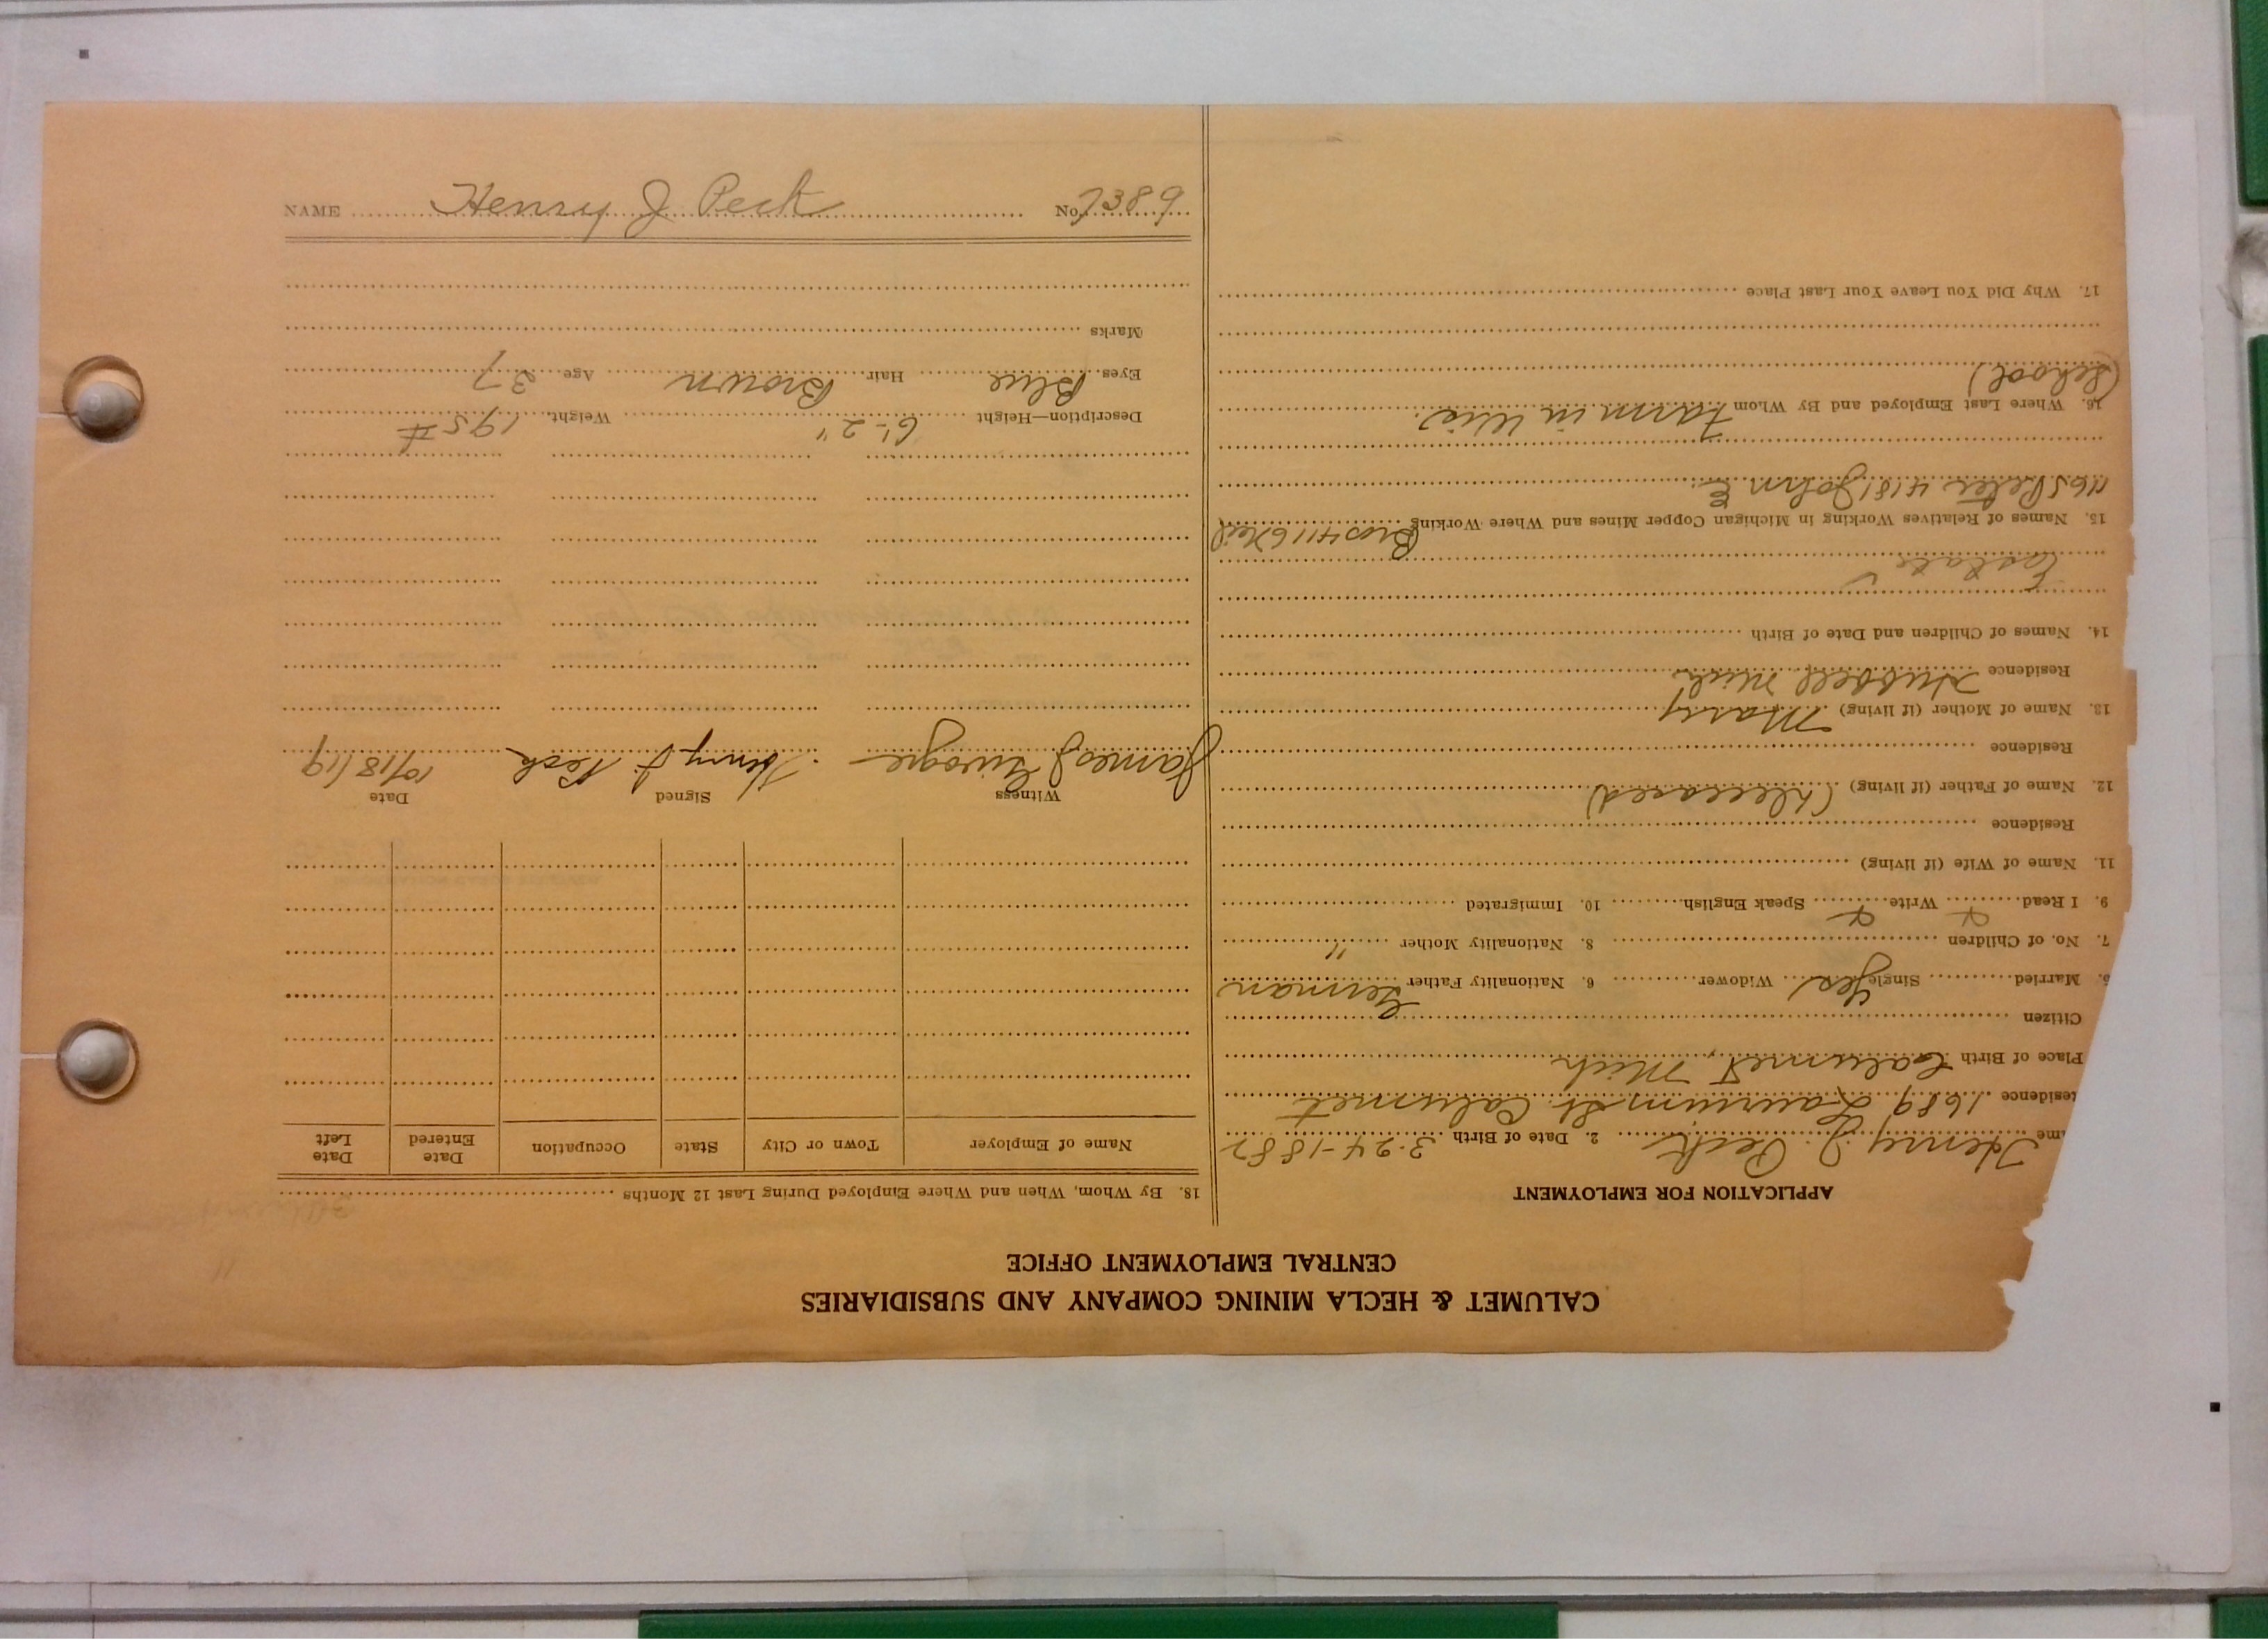 CALUMET & HECLA MINING COMPANY AND SUBSIDIARIES
CENTRAL EMPLOYMENT OFFICE
APPLICATION FOR EMPLOYMENT
ame Henry J. Peck 2. Date of Birth 3-24-1882
esidence 1689 Laurium St. Calumet
Place of Birth Calumet Mich
Citizen
5. Married Single Yes Widower 6. Nationality Father German
7. No. of Children 8. Nationality Mother "
9. I Read Write Speak English 10. Immigrated
11. Name of Wife (if living)
Residence
12. Name of Father (if living) (deceased)
Residence
13. Name of Mother (if living) Mary
Residence Hubbell Mich
14. Names of Children and Date of Birth
15. Names of Relatives Working in Michigan Copper Mines and Where Working Bros 4116 Neil
1165 Peter 4181 John E.
16. Where Last Employed and By Whom Farm in Wis.
(School)
17. Why Did You Leave Your Last Place
18. By Whom, When and Where Employed During Last 12 Months
Name of Employer Town or City State Occupation Date Entered Date Left
Witness Signed Date
James J Henry J. Peck 10/18/19
Description—Height 6'-2" Weight 195#
Eyes Blue Hair Brown Age 37
Marks
NAME Henry J Peck No. 7389